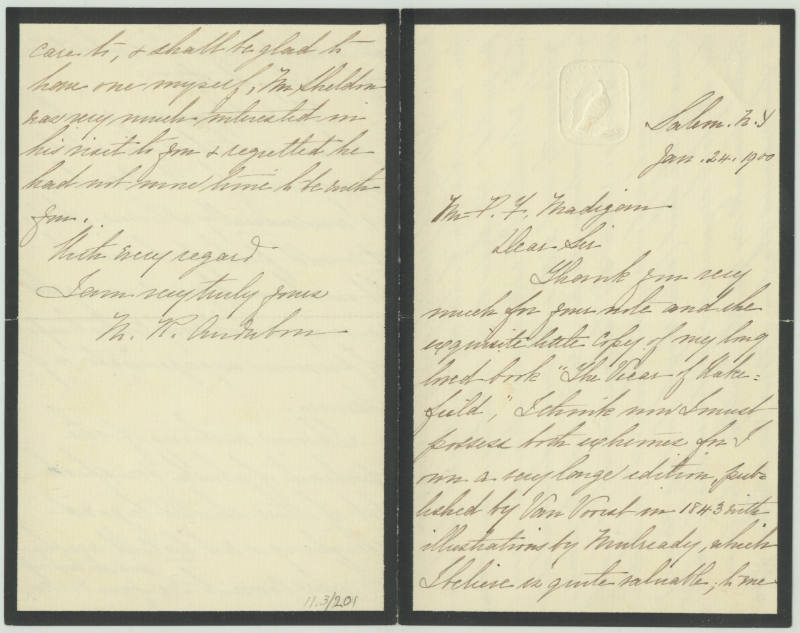 Salem. N.Y
Jan. 24. 1900
Mr. P. F. Madigan
Dear Sir
Thank you very
much for your note and the
exquisite little copy of my long
loved book "The Vicar of Wake=
field", I think now I must
possess both extremes for I
own a very large edition, pub=
lished by Van Voorst in 1843 with
illustrations by Mulready, which
I believe is quite valuable; to me
care to, & shall be glad to
have one myself, Mr Sheldon
was very much interested in
his visit to you & regretted he
had not more time to be with
you.
With every regard
I am very truly yours
M. R. Audubon
11.3/201